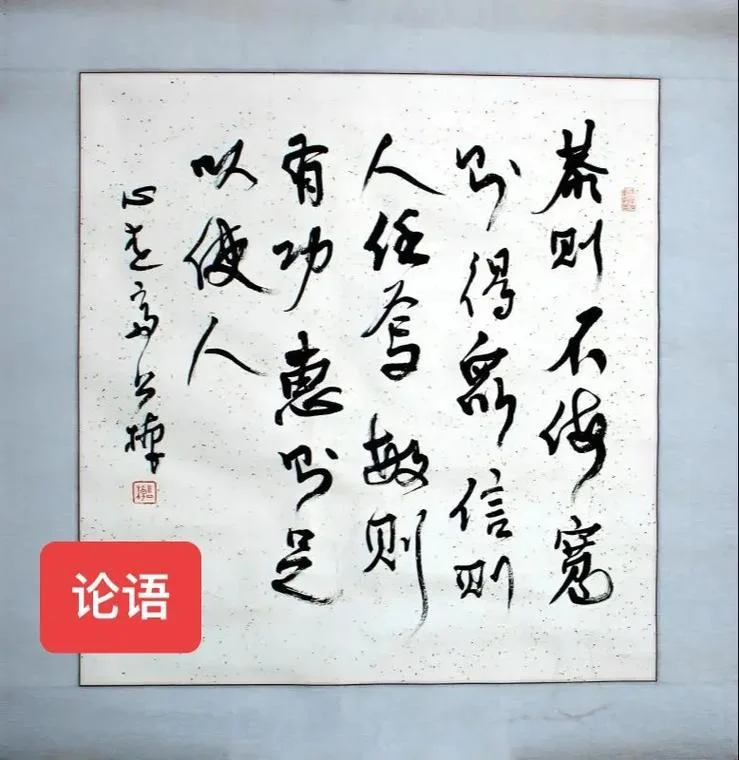 恭则不侮寬
则得众信则
人任焉敏则
有功惠则足
以使人
论语